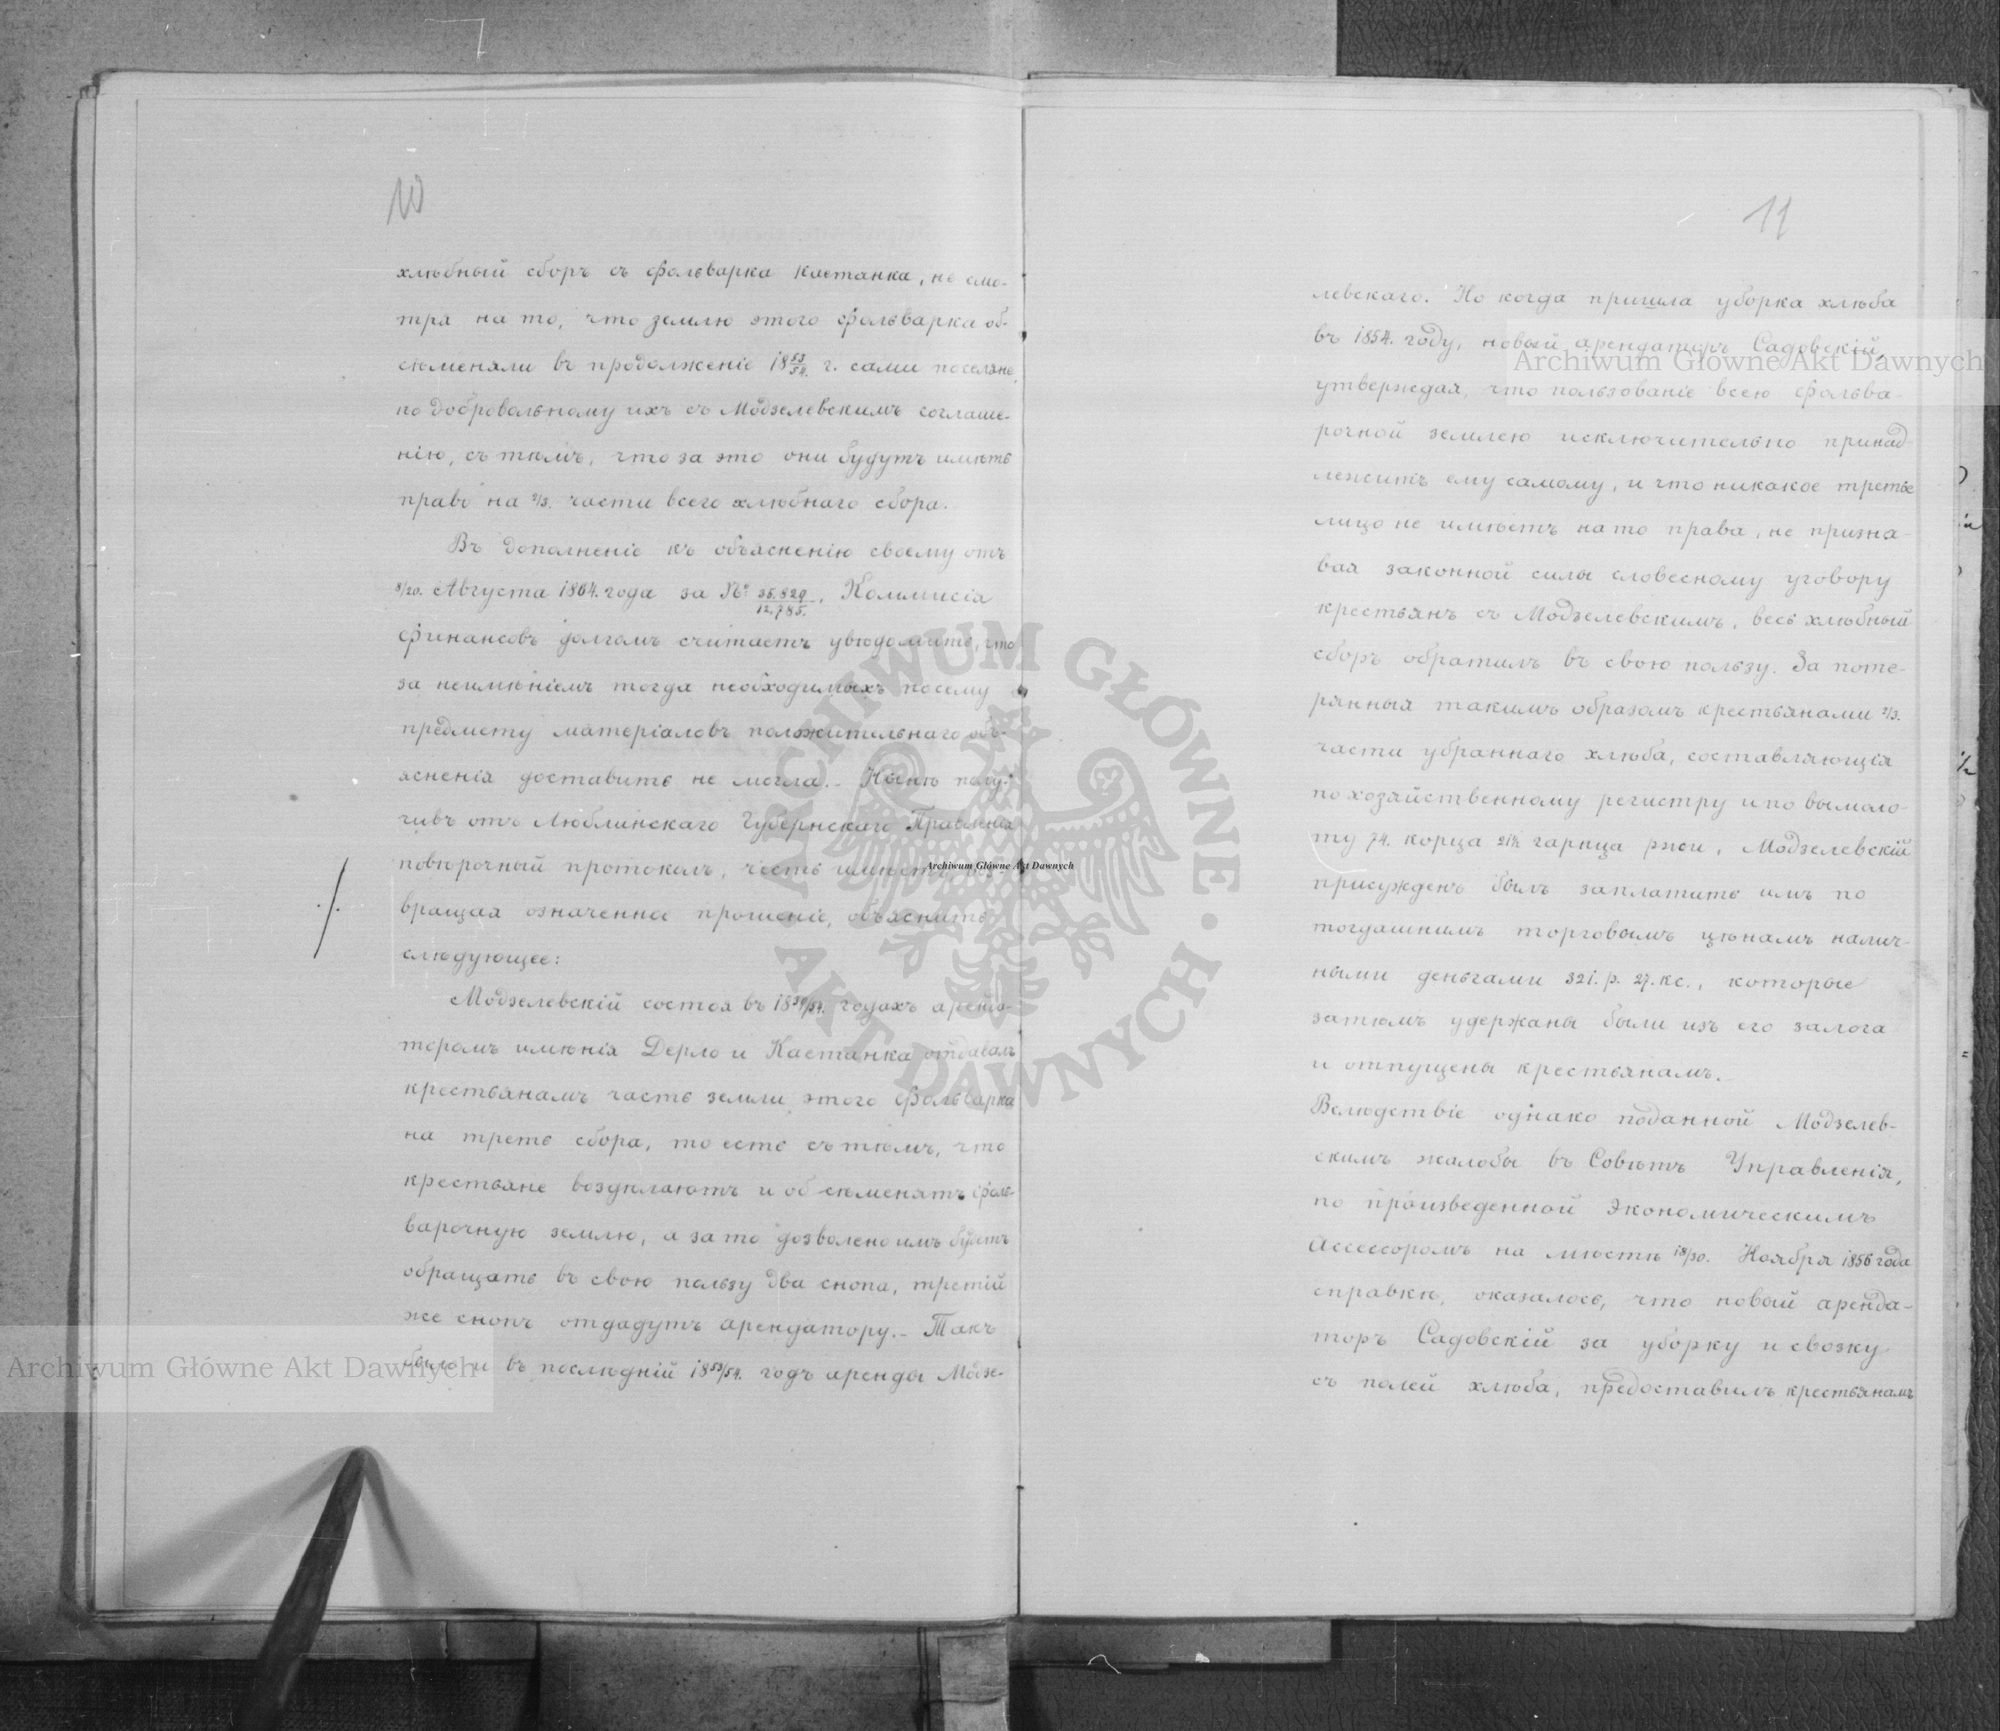 10
хлѣбный сборъ съ фольварка Кастанка, не смо-
тря на то, что землю этого фольварка об-
сѣменяли въ продолженіе 18 53/54. г. сами поселяне,
по добровольному ихъ съ Модзелевскимъ соглаше-
нію, съ тѣмъ, что за это они будутъ имѣть
право на 2/3. части всего хлѣбнаго сбора.
Въ дополненіе къ объясненію своему отъ
8/20. Августа 1864. года за № 36.829/12,785. Коммисія
финансовъ долгомъ считаетъ увѣдомить, что
за неимѣніемъ тогда необходимыхъ по сему
предмету матеріаловъ положительнаго объ-
ясненія доставить не могла.- Нынѣ полу-
чивъ отъ Люблинскаго Губернскаго Правленія
повѣрочный протоколъ, честь имѣетъ, воз-
вращая означенное прошеніе, объяснить
слѣдующее:
Модзелевскій состоя въ 18 /54. годахъ аренда-
торомъ имѣнія Дерло и Кастанка отдавалъ
крестьянамъ часть земли этого фольварка
на треть сбора, то есть съ тѣмъ, что
крестьяне воздѣлаютъ и обсѣменятъ фоль-
варочную землю, а за то дозволено имъ будетъ
обращать въ свою пользу два снопа, третій
же снопъ отдадутъ арендатору.- Такъ
было и въ послѣдній 18 53/54. годъ аренды Модзе-
11
левскаго. Но когда пришла уборка хлѣба
въ 1854. году, новый арендаторъ Садовскій,
утверждая, что пользованіе всею фольва-
рочной землею исключительно принад-
лежитъ ему самому, и что никакое третье
лицо не имѣетъ на то права, не призна-
вая законной силы словесному уговору
крестьянъ съ Модзелевскимъ, весь хлѣбный
сборъ обратилъ въ свою пользу. За поте-
рянныя такимъ образомъ крестьянами 2/3.
части убраннаго хлѣба, составляющія
по хозяйственному регистру и по вымоло-
ту 74. корца гарнца ржи, Модзелевскій
присужденъ былъ заплатить имъ по
тогдашнимъ торговымъ цѣнамъ налич-
ными деньгами 321. р. 27. кс., которые
затѣмъ удержаны были изъ его залога
и отпущены крестьянамъ.
Вслѣдствіе однако поданной Модзелев-
скимъ жалобы въ Совѣтъ Управленія,
по произведенной Экономическимъ
Ассессоромъ на мѣстѣ 18/30. Ноября 1856 года
справкѣ, оказалось, что новый аренда-
торъ Садовскій за уборку и свозку
съ полей хлѣба, предоставилъ крестьянамъ
Archiwum Główne Akt Dawnych
Archiwum Główne Akt Dawnych
Archiwum Główne Akt Dawnych
ARCHIWUM GŁÓWNE · AKT DAWNYCH ·